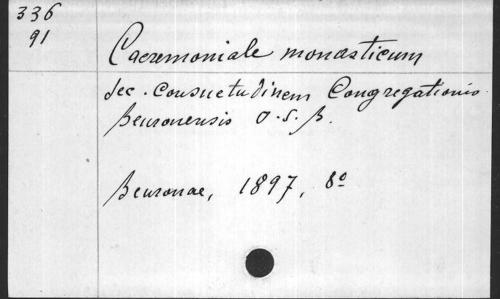 336
91
Caeremoniale monasticum
sec. Consuetudinem Congregationis
Beuronensis O.S.B.
Beuronae, 1897, 8º